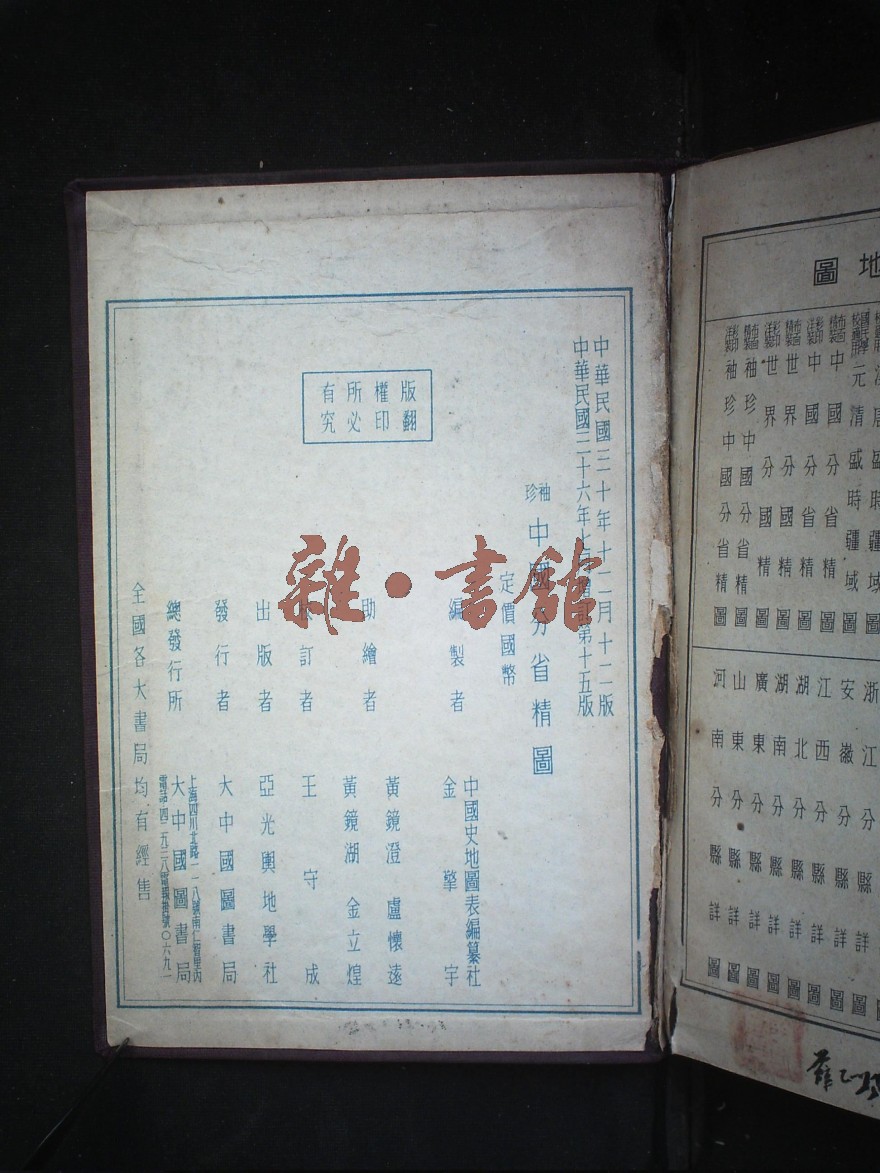 中華民國三十年十二月十二版
中華民國三十六年七月增訂第十五版
袖珍
中國分省精圖
定價國幣
編製者
中國史地圖表編纂社
金擎宇
助繪者
黃鏡澄 盧懷遠
黃鏡湖 金立煌
訂者
王守成
出版者
亞光輿地學社
發行者
大中國圖書局
總發行所
大中國圖書局
全國各大書局均有經售
版權所有
翻印必究
雜·書館
地圖
元清盛時疆域圖
中國分省精圖
中國分省精圖
世界分國精圖
世界分國精圖
袖珍中國分省精圖
袖珍中國分省精圖
浙江分縣詳圖
安徽分縣詳圖
江西分縣詳圖
湖北分縣詳圖
湖南分縣詳圖
廣東分縣詳圖
山東分縣詳圖
河南分縣詳圖